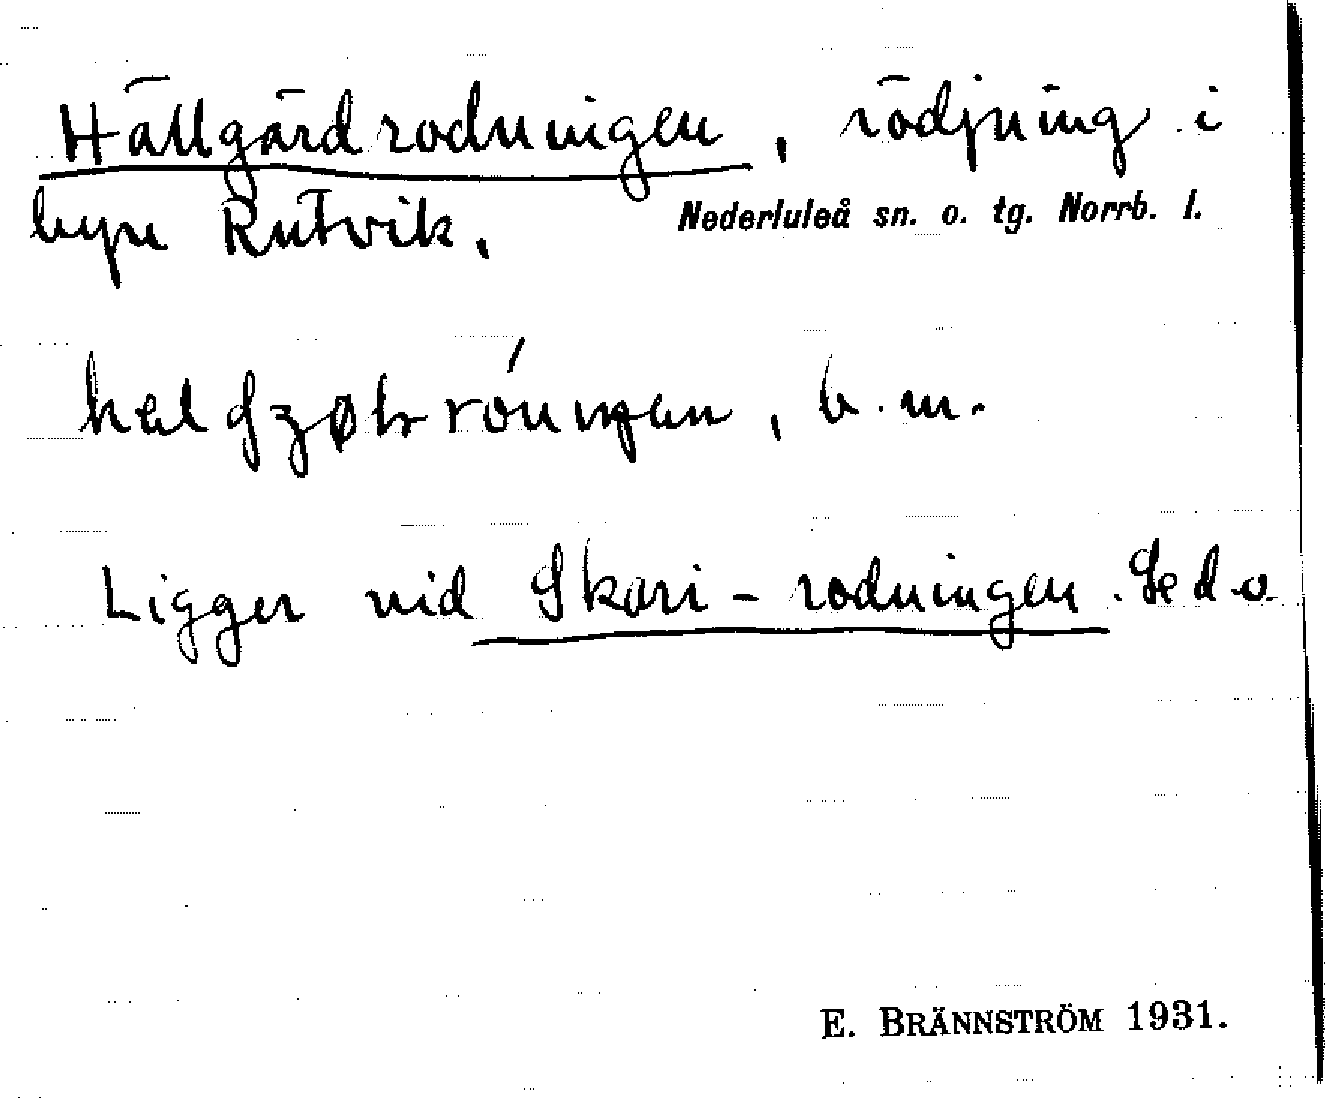 Hällgärdrodningen, rödjning i
byn Rutvik. Nederluleå sn. o. tg. Norrb. l.
b. m.
Ligger vid Skari-rodningen. Se d. o.
E. BRÄNNSTRÖM 1931.